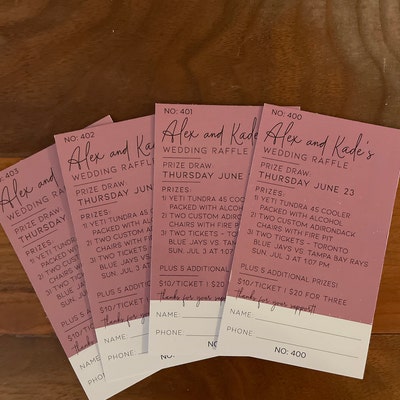 403
WEDDING
PRIZE DRAW:
THURSDAY
PRIZES:
1) YETI TUNDRA
PACKED WITH
2) TWO CUSTOM
CHAIRS WITH
3) TWO TICKETS
BLUE JAYS
SUN. JUL
PLUS 5
$10/TICKET
NAME:
PHONE:
NO: 402
Alex and
WEDDING RAFFLE
PRIZE DRAW:
THURSDAY
PRIZES:
1) YETI TUNDRA
PACKED WITH
2) TWO CUSTOM
CHAIRS WITH
3) TWO TICKETS
BLUE JAYS
SUN. JUL 3
PLUS 5
$10/TICKET
thanks for
NAME:
PHONE:
NO: 401
Alex and Kade's
WEDDING RAFFLE
PRIZE DRAW:
THURSDAY JUNE
PRIZES:
1) YETI TUNDRA 45
PACKED WITH ALCOHOL
2) TWO CUSTOM
CHAIRS WITH FIRE
3) TWO TICKETS -
BLUE JAYS VS.
SUN. JUL 3 AT 1:07
PLUS 5 ADDITIONAL
$10/TICKET | $20
thanks for your
NAME:
PHONE:
NO: 400
Alex and Kade's
WEDDING RAFFLE
PRIZE DRAW:
THURSDAY JUNE 23
PRIZES:
1) YETI TUNDRA 45 COOLER
PACKED WITH ALCOHOL
2) TWO CUSTOM ADIRONDACK
CHAIRS WITH FIRE PIT
3) TWO TICKETS - TORONTO
BLUE JAYS VS. TAMPA BAY RAYS
SUN. JUL 3 AT 1:07 PM
PLUS 5 ADDITIONAL PRIZES!
$10/TICKET | $20 FOR THREE
thanks for your support!
NAME:
PHONE:
NO: 400